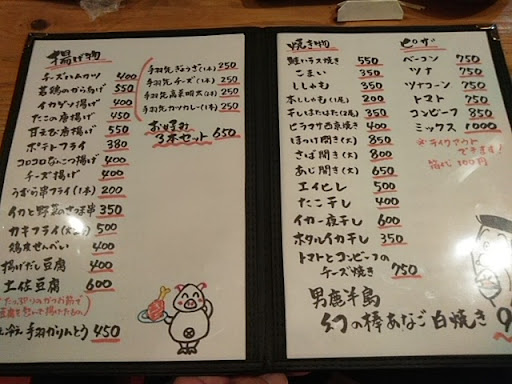 揚げ物
チーズハムカツ 400
若鶏のから揚げ 350
イカゲソ揚げ 400
たこの唐揚げ 450
甘えび唐揚げ 550
ポテトフライ 380
コロコロなんこつ揚げ 400
チーズ揚げ 400
うずら串フライ(1本) 200
イカと野菜のさつま串 350
カキフライ 500
鶏皮せんべい 400
揚げだし豆腐 400
土佐豆腐 600
手羽かりんとう 450
手羽先ぎょうざ(1本) 250
手羽先チーズ(1本) 250
手羽先高菜明太(1本) 250
手羽先カツカレー(1本) 250
お好み
3本セット 650
焼き物
鮭ハラス焼き 550
こまい 350
ししゃも 350
本ししゃも(1尾) 200
干しほたほた(2尾) 350
ヒラマサ西京焼き 400
ほっけ開き(大) 800
さば開き(大) 800
あじ開き(大) 650
エイヒレ 500
たこ干し 400
イカ一夜干し 600
ホタルイカ干し 350
トマトとコンビーフの
チーズ焼き 750
男鹿半島
幻の棒あなご白焼き
ピザ
ベーコン 750
ツナ 750
ツナコーン 750
トマト 750
コンビーフ 850
ミックス 1000
※テイクアウト
できます!
箱代100円